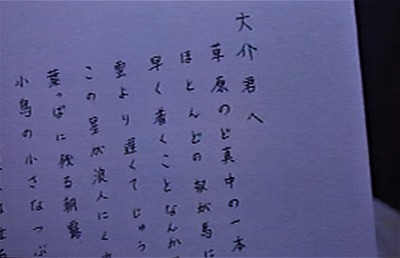 大介君へ
草原のど真中の一本
ほとんどの奴が馬に
早く着くことなんか
雲より遅くてじゅう
この星が浪人にく
葉っぱに残る朝露
小鳥の小さなつぶ